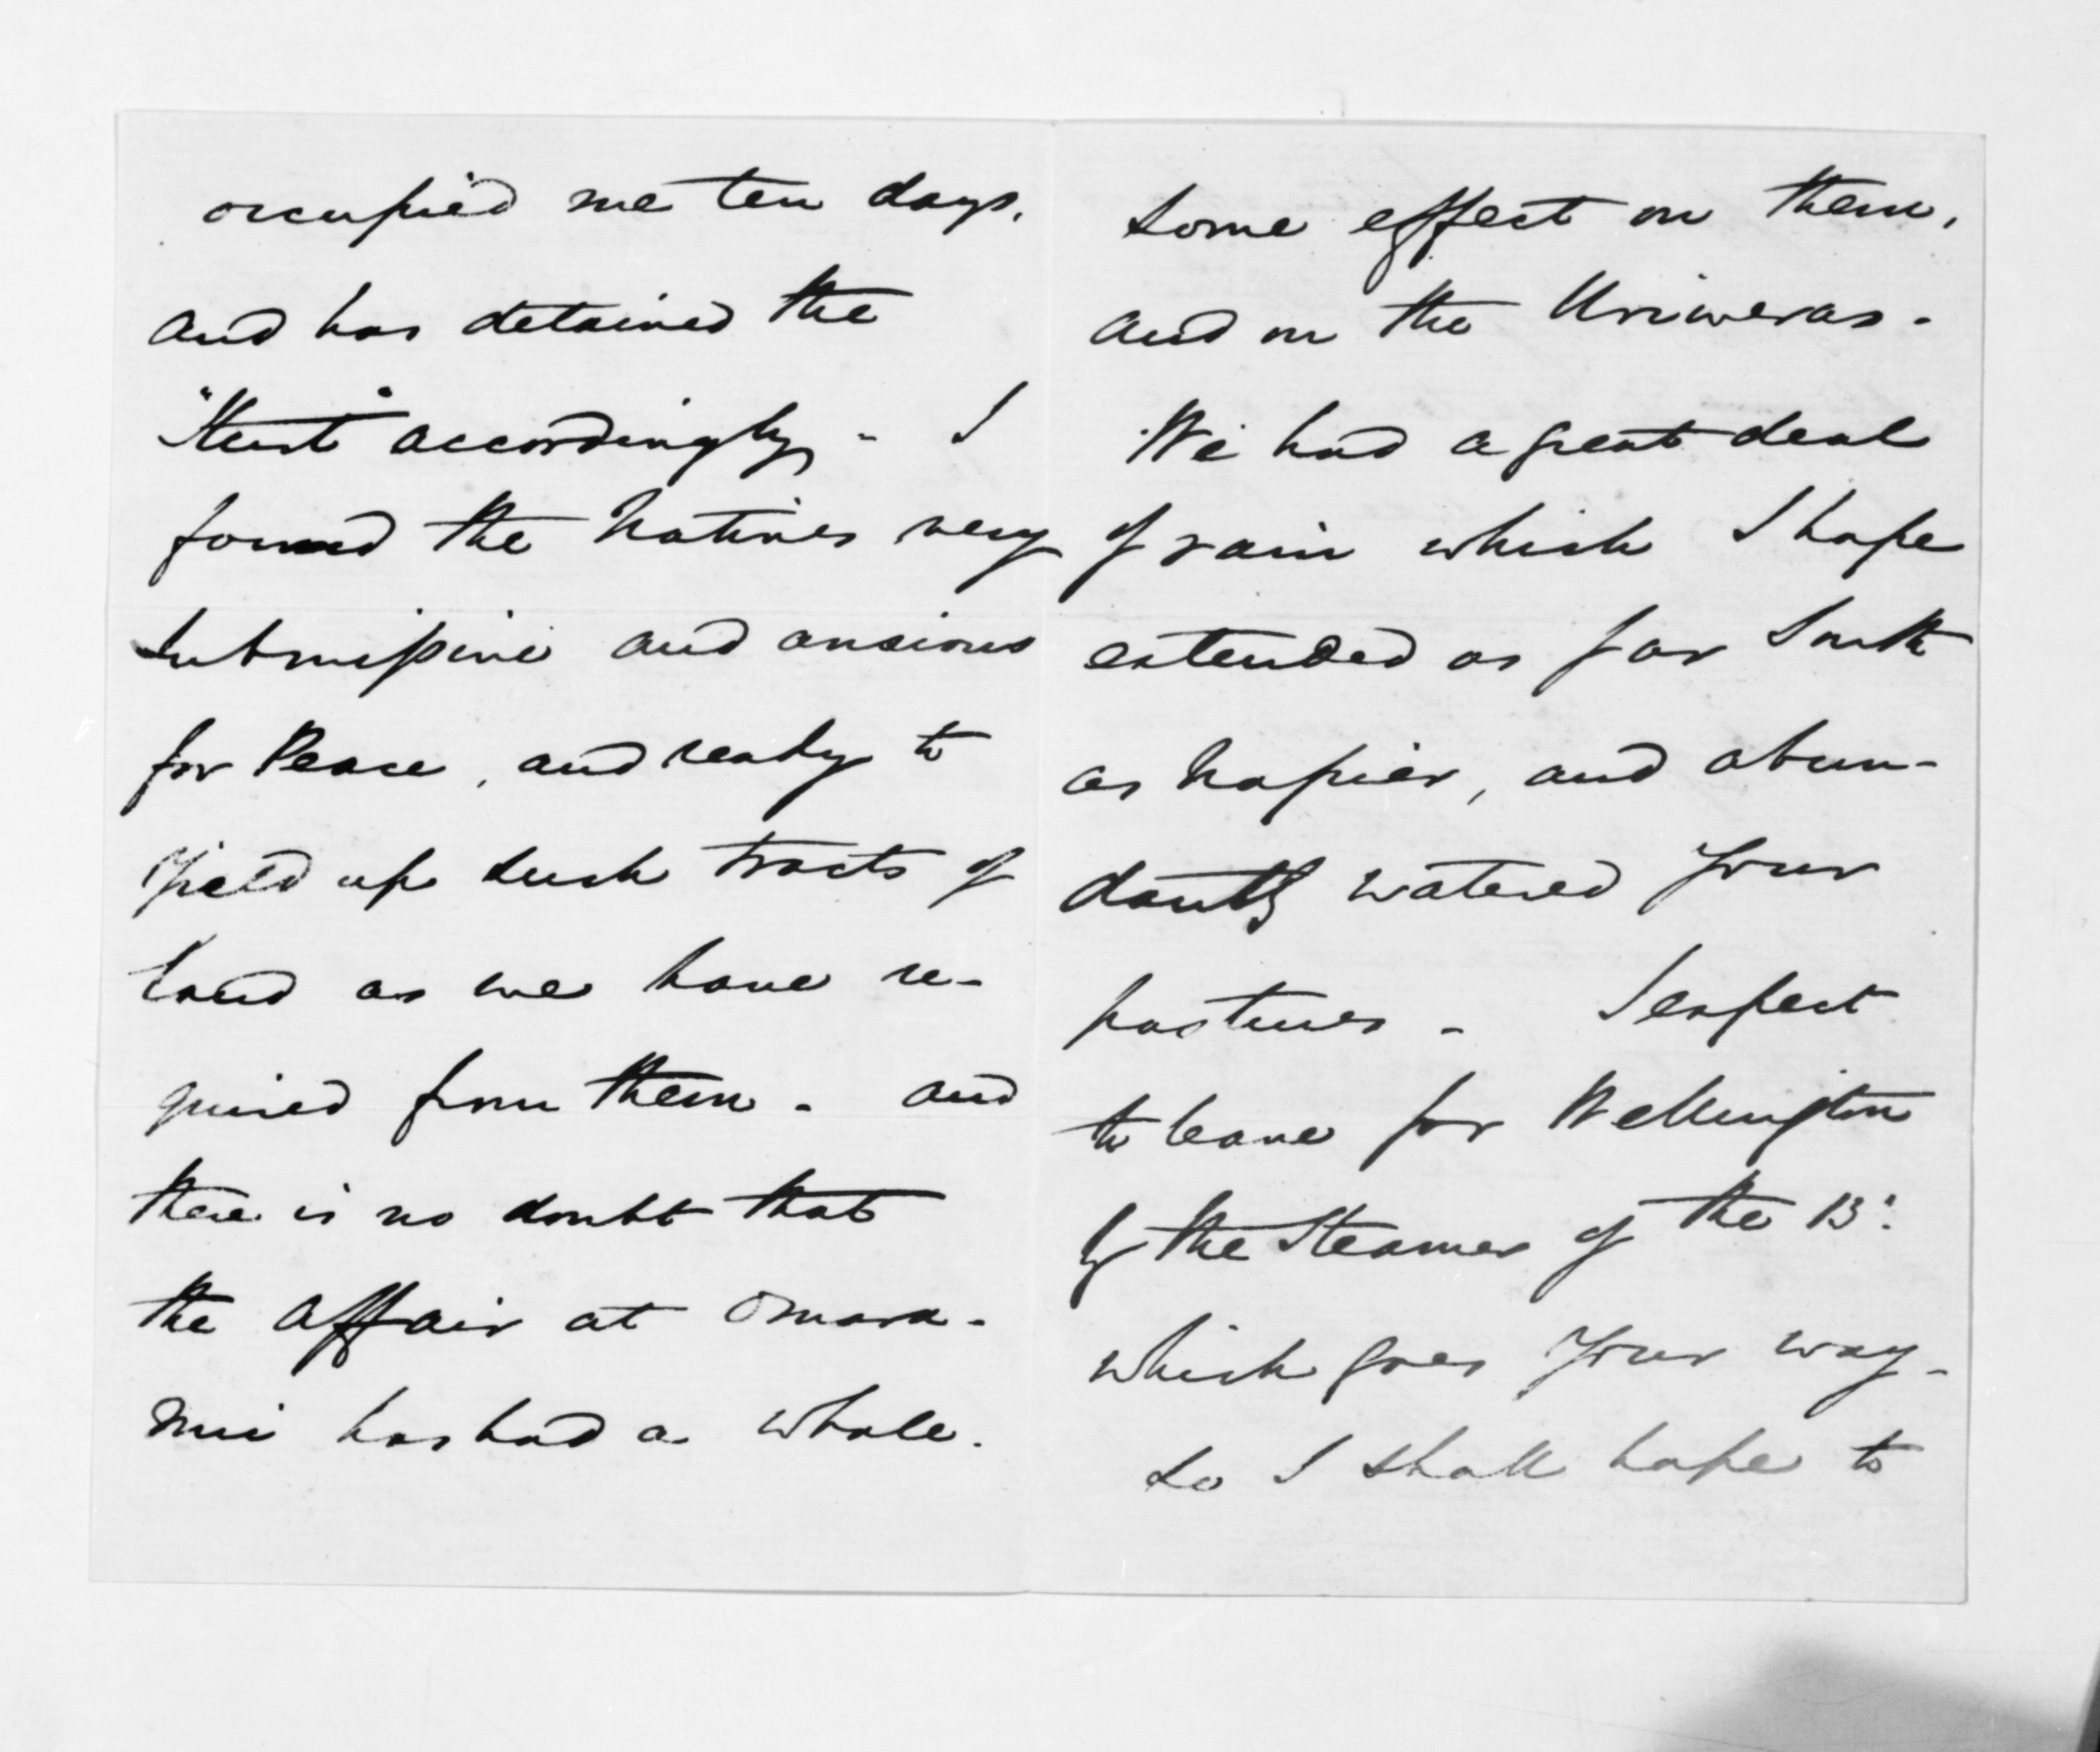 occupied me ten days,
and has detained the
"Sturt" accordingly, - I
found the Natives very
submissive and anxious
for Peace, and ready to
yield up such tracts of
land as we have re-
quired from them - and
there is no doubt that
the affair at Omara-
nui has had a whole-
some effect on them,
and on the Uriweras -
We had a great deal
of rain which I hope
extended as far South
as Napier, and abun-
dantly watered your
pastures - I expect
to leave for Wellington
by the Steamer of the 13th
which goes your way -
so I shall hope to